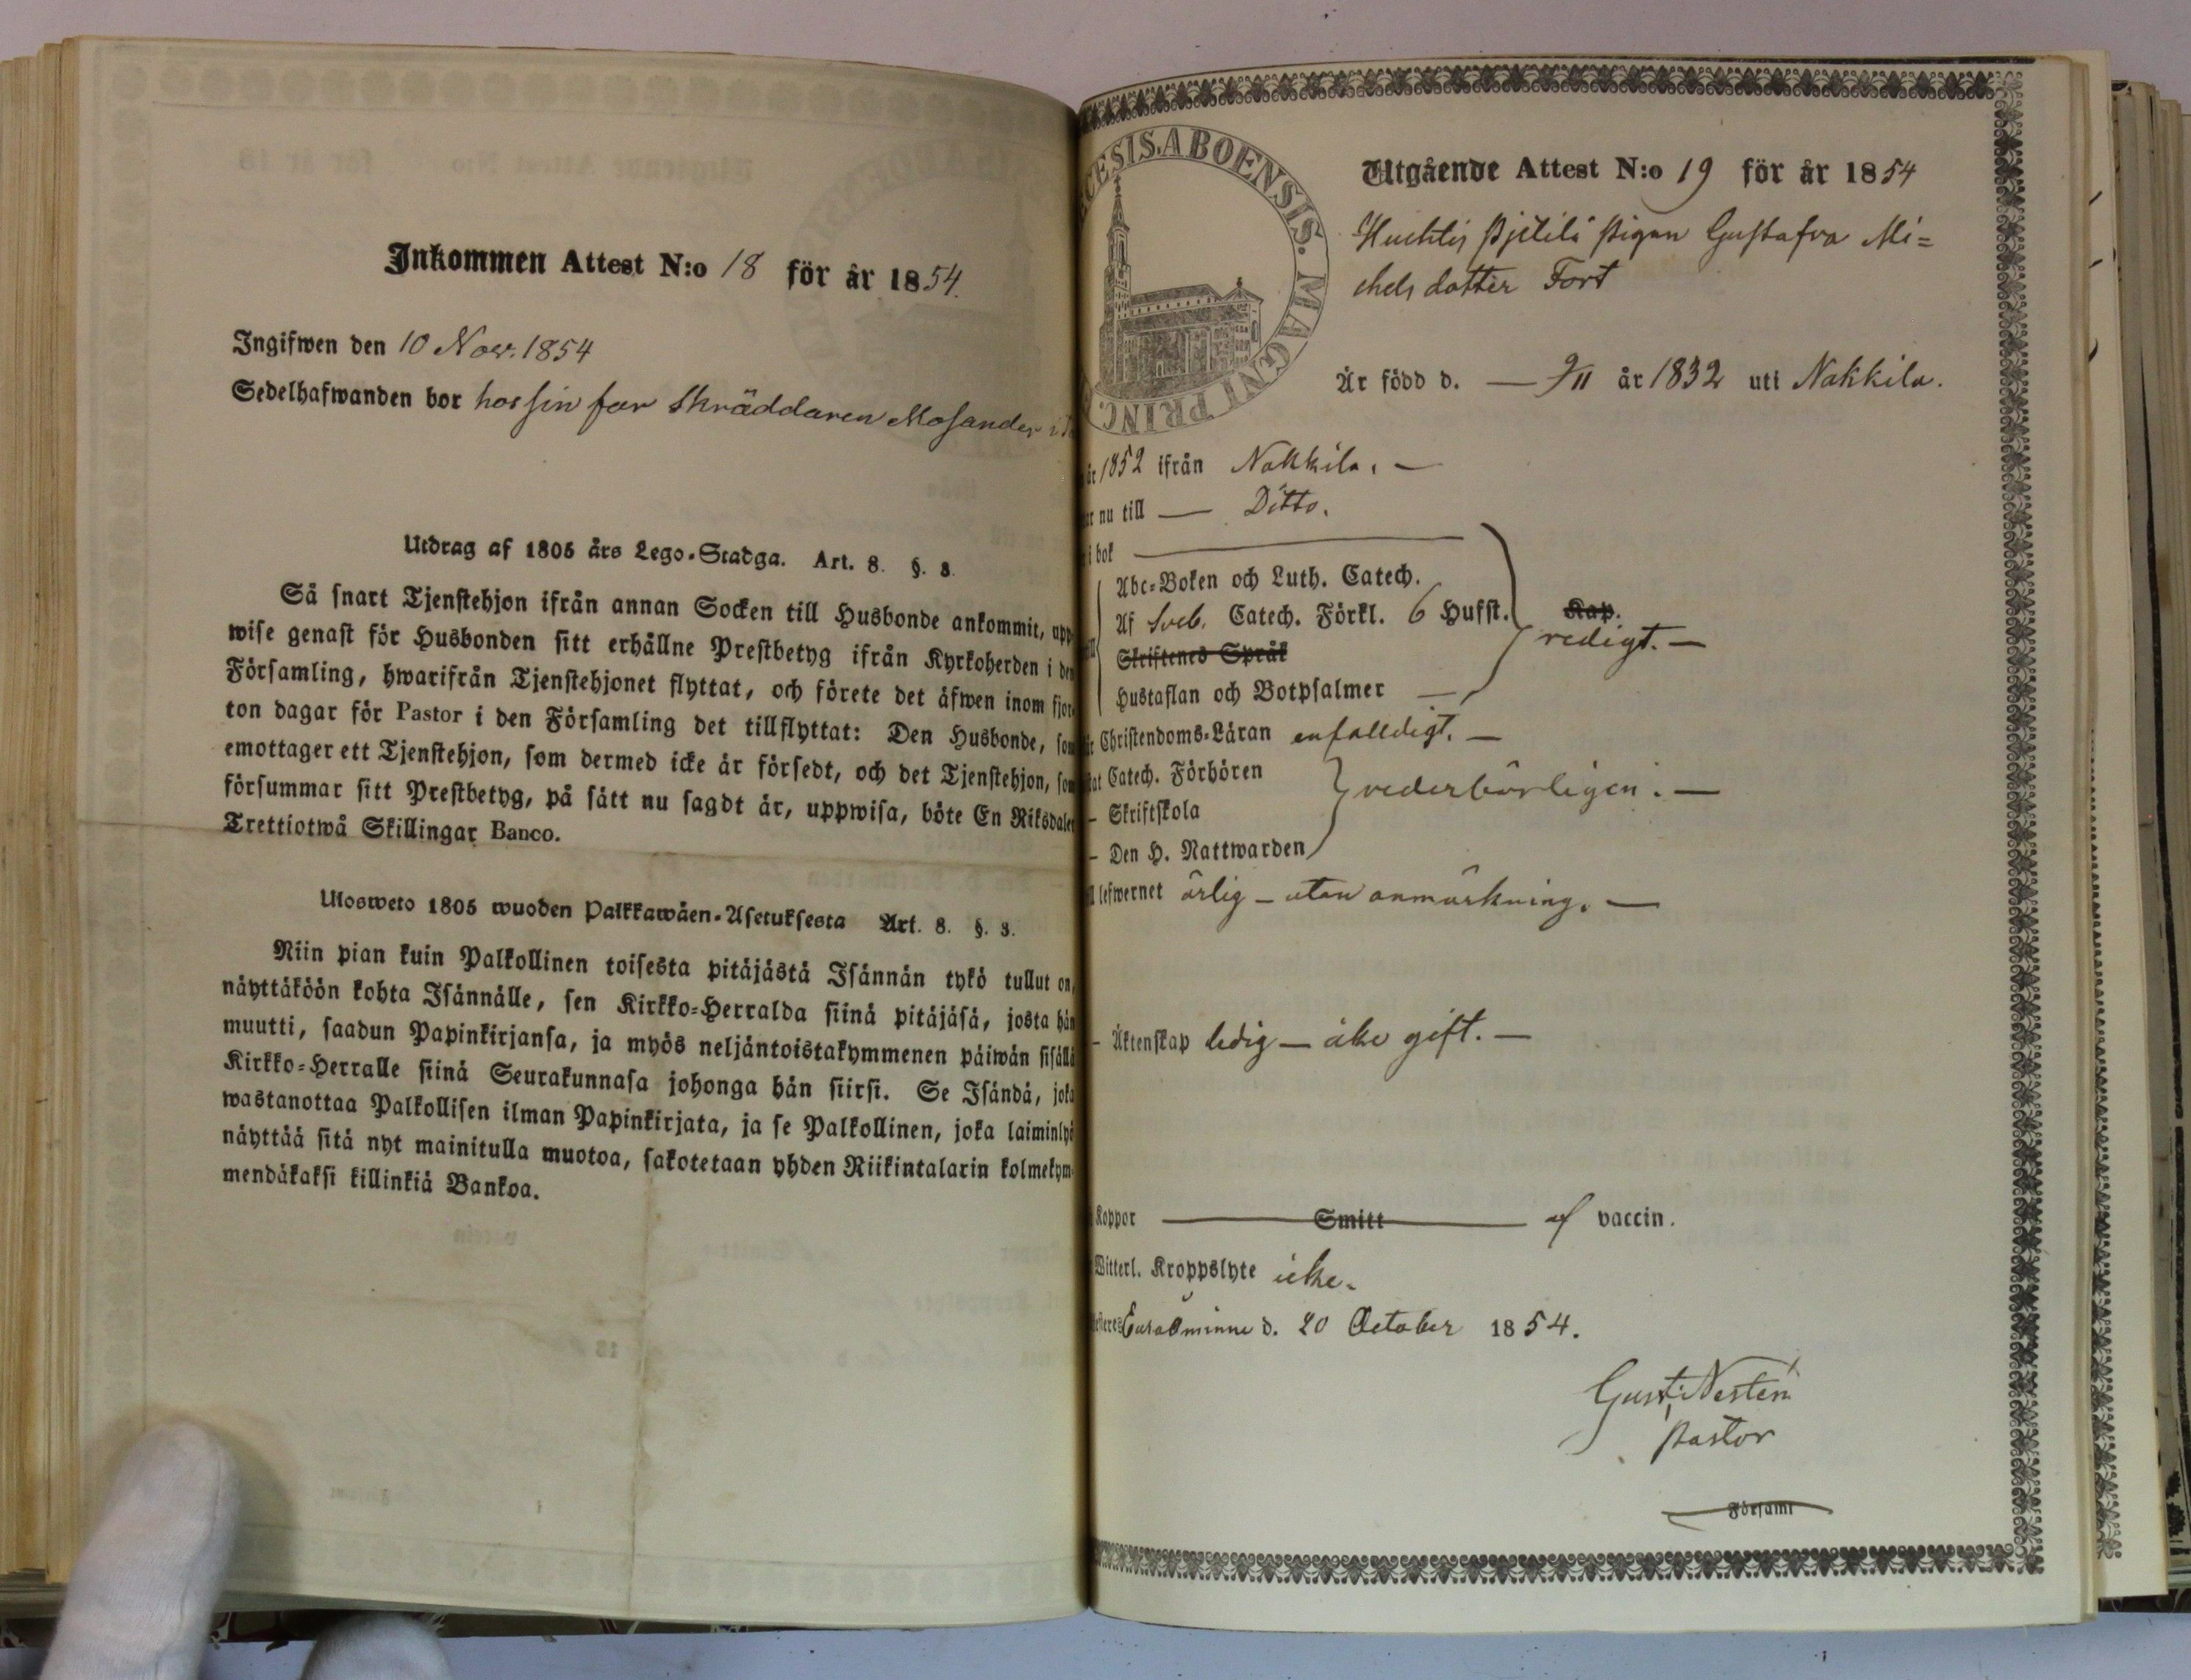 Inkommen Attest N:o 18 för år 1854.
Ingifwen den 10 Nov. 1854
Sedelhafwanden bor hos sin far Skräddaren Mosander i
Utdrag af 1805 års Lego-Stadga. Art. 8. §. 3.
Så snart Tjenstehjon ifrån annan Socken till Husbonde ankommit, upp-
wise genast för Husbonden sitt erhållne Prestbetyg ifrån Kyrkoherden i den
Församling, hwarifrån Tjenstehjonet flyttat, och förete det äfwen inom fjor-
ton dagar för Pastor i den Församling det tillflyttat: Den Husbonde, som
emottager ett Tjenstehjon, som dermed icke är försedt, och det Tjenstehjon, som
försummar sitt Prestbetyg, på sätt nu sagdt är, uppwisa, böte En Riksdaler
Trettiotwå Skillingar Banco.
Ulosweto 1805 wuoden Palkkawäen-Asetuksesta Art. 8. §. 3.
Niin pian kuin Palkollinen toisesta pitäjästä Isännän tykö tullut on,
näyttäköön kohta Isännälle, sen Kirkko-Herralda siinä pitäjäsä, josta hän
muutti, saadun Papinkirjansa, ja myös neljäntoistakymmenen päiwän sisällä
Kirkko-Herralle siinä Seurakunnasa johonga hän siirsi. Se Isändä, joka
wastanottaa Palkollisen ilman Papinkirjata, ja se Palkollinen, joka laiminlyö
näyttää sitä nyt mainitulla muotoa, sakotetaan yhden Riikintalarin kolmekym-
mendäkaksi killinkiä Bankoa.
CESIS. ABOENSIS. MAGNI PRINC.
Utgående Attest N:o 19 för år 1854
Huchtis Pjetilä Pigan Gustafva Mi=
chels dotter Fort
Är född d. — 9/11 år 1832 uti Nakkila.
år 1852 ifrån Nakkila. —
nu till — Ditto.
i bok
Abc-Boken och Luth. Catech.
Af Sveb. Catech. Förkl. 6 Hufst. Kap.
redigt. —
Skriftenes Språk
Hustaflan och Botpsalmer —
Christendoms-Läran enfalldigt. —
Catech. Förhören
vederbörligen. —
– Skriftskola
– Den H. Nattwarden
lefwernet ärlig – utan anmärkning. —
– Äktenskap ledig – icke gift. —
Koppor Smitt af vaccin.
Witterl. Kroppslyte icke.
Euraåminne d. 20 October 1854.
Gust: Nestén
Pastor
Församl